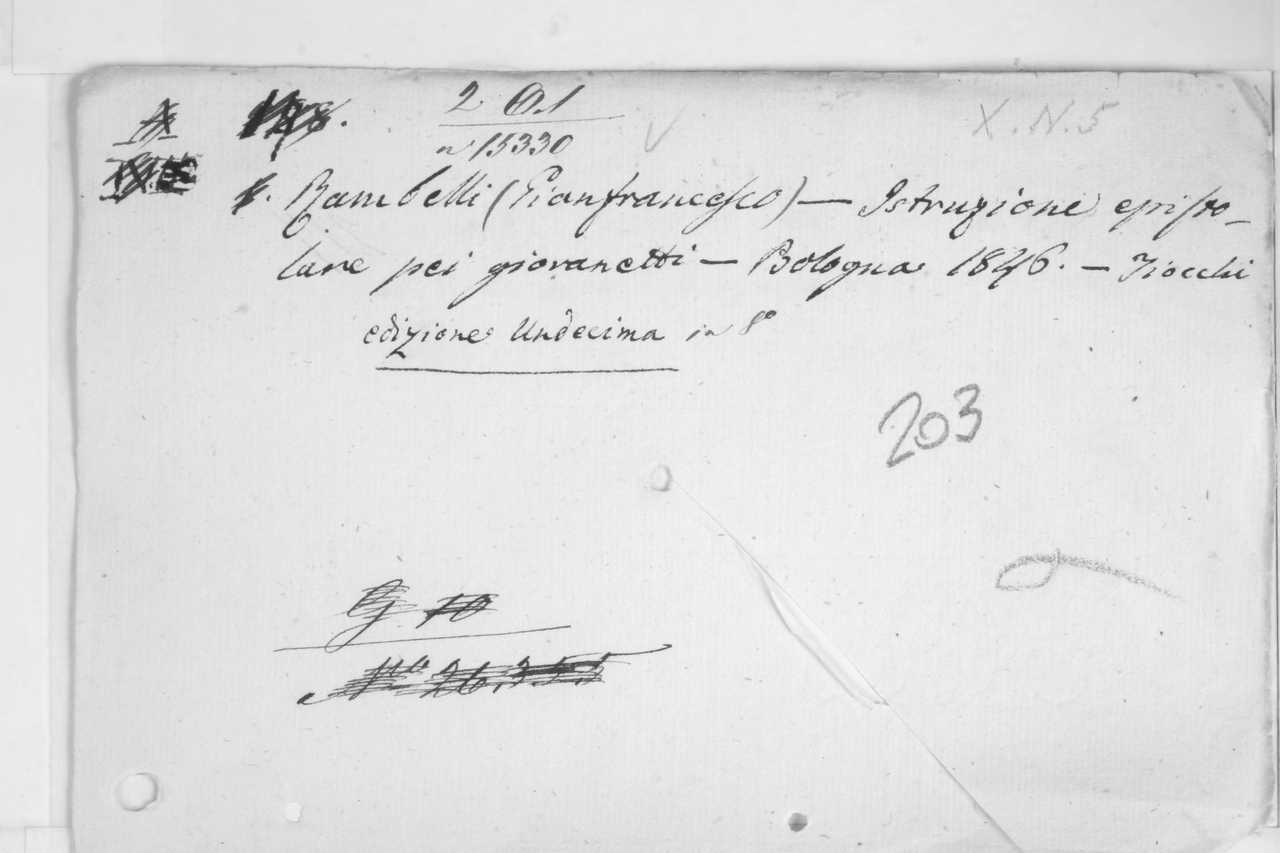 2 O.1
n 15330
X. N. 5
Rambelli (Gianfrancesco) — Istruzione episto_
lare pei giovanetti — Bologna 1846. — Tiocchi
edizione Undecima in 8°
203
10
N° 26,355